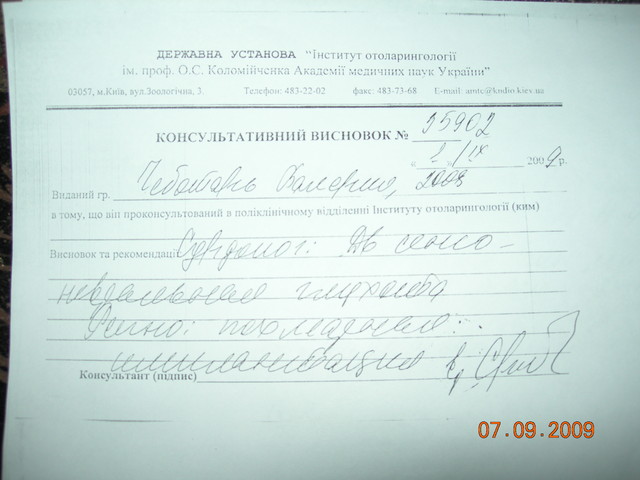 ДЕРЖАВНА УСТАНОВА “Інститут отоларингології
ім. проф. О.С. Коломійченка Академії медичних наук України”
03057, м.Київ, вул.Зоологічна, 3. Телефон: 483-22-02 факс: 483-73-68 E-mail: amtc@kndio.kiev.ua
КОНСУЛЬТАТИВНИЙ ВИСНОВОК № 35902
« 1 » IX 2009 р.
Виданий гр. Чеботарь Валерия, 2008
в тому, що він проконсультований в поліклінічному відділенні Інституту отоларингології (ким)
Висновок та рекомендації Сурдолог: Дв сенсо-
невральная глухота
Реком: кохлеарная
имплантация
Консультант (підпис)
07.09.2009